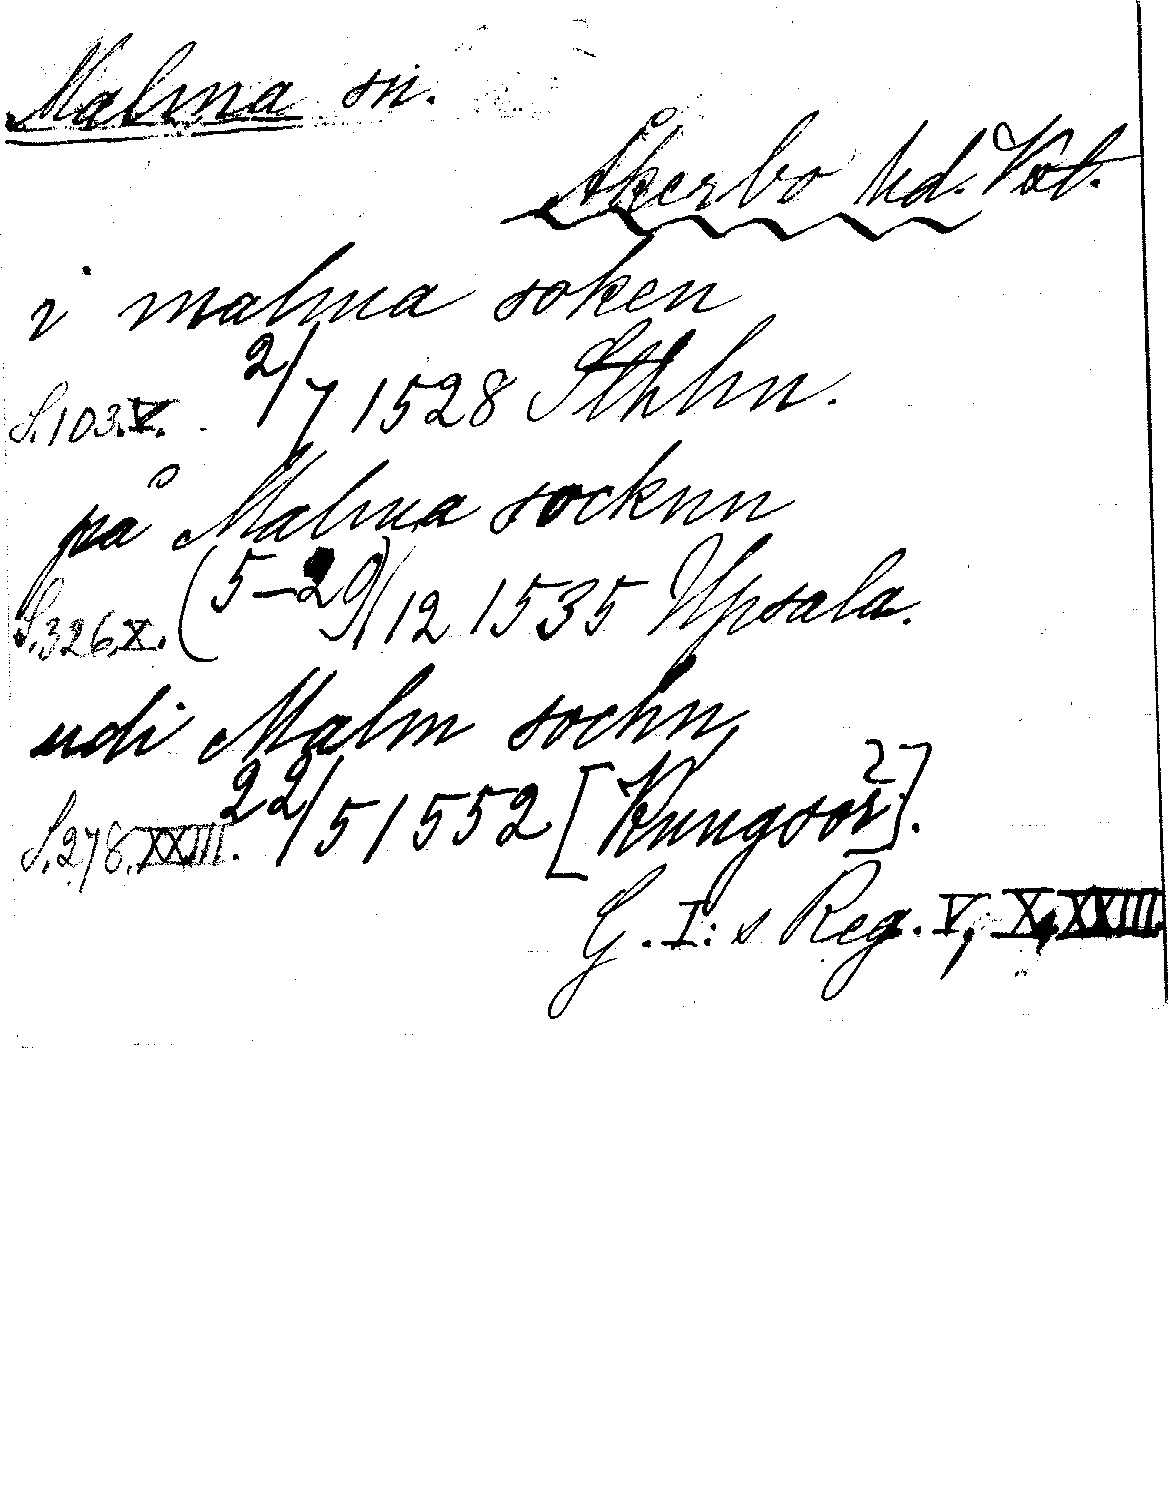 Malma sn.
Åkerbo hd. Vstl.
i malma soken
S. 103. V. 2/7 1528 Sthlm.
på Malma socknn
S. 326. X. (5–29)/12 1535 Upsala.
udi Malm sochn
S. 278. XXIII. 22/5 1552 [Kungsör?].
G. I:s Reg. V, X, XXIII.